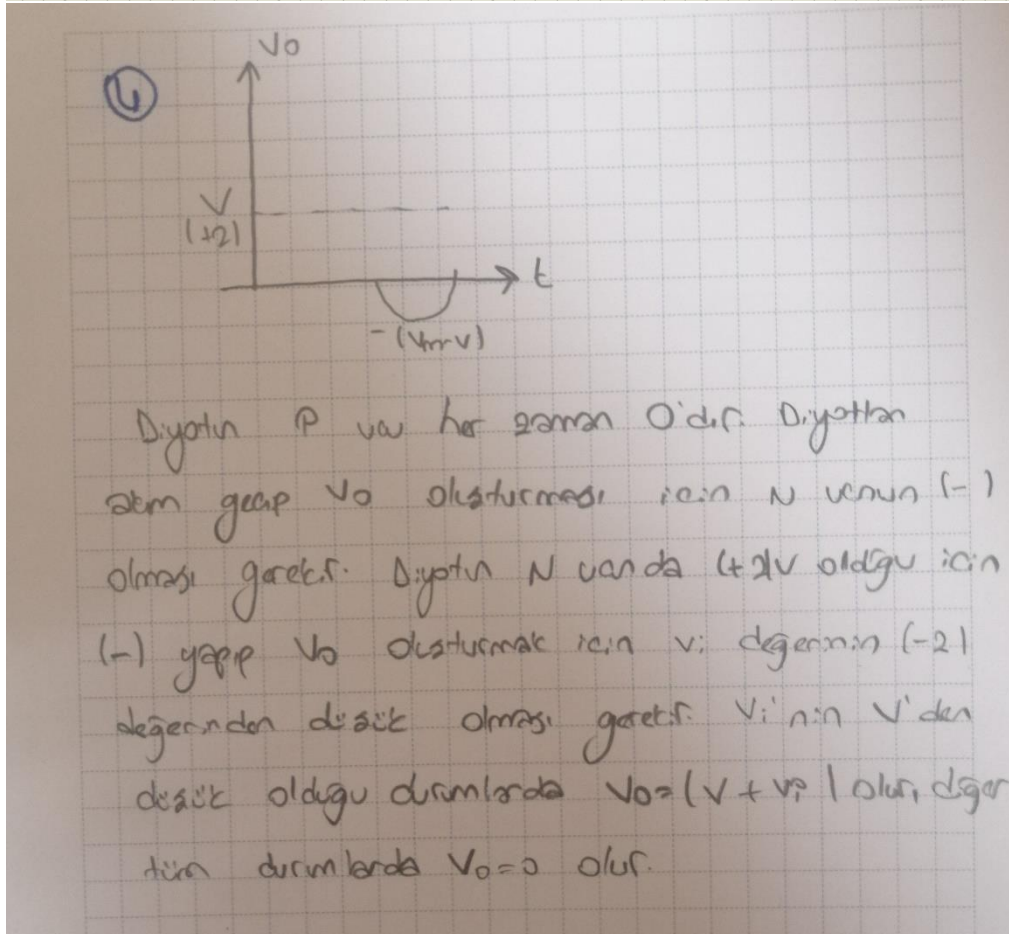 Vo
4
V
(+2)
t
-(Vm-V)
Diyotun P ucu her zaman 0'dır. Diyottan
akım geçip Vo oluşturması için N ucunun (-)
olması gerekir. Diyotun N ucunda (+2)V olduğu için
(-) yapıp Vo oluşturmak için Vi değerinin (-2)
değerinden düşük olması gerekir. Vi'nin V'den
düşük olduğu durumlarda Vo=(V+Vi) olur, diğer
tüm durumlarda Vo=0 olur.